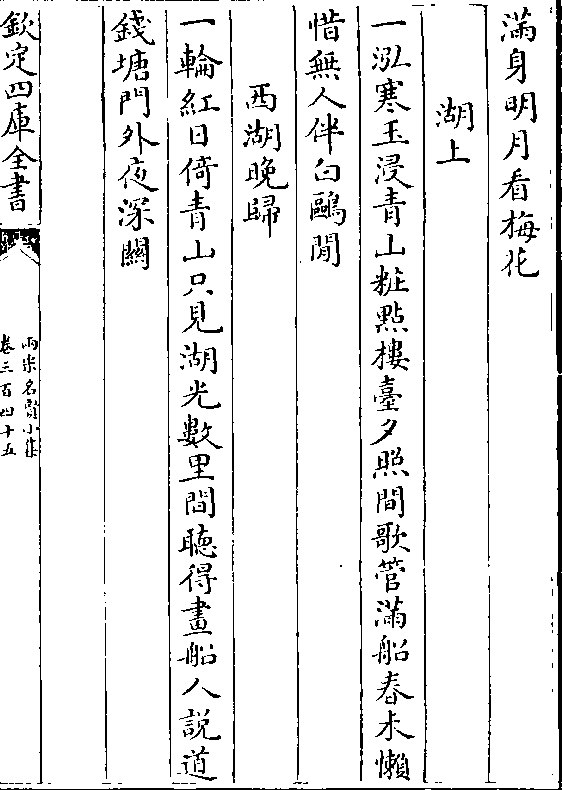 滿身明月看梅花
湖上
一泓寒玉浸青山粧點樓臺夕照間歌管滿船春未懶
惜無人伴白鷗閒
西湖晚歸
一輪紅日倚青山只見湖光數里間聽得畫船人説道
錢塘門外夜深關
欽定四庫全書
兩宋名賢小集
卷三百四十五